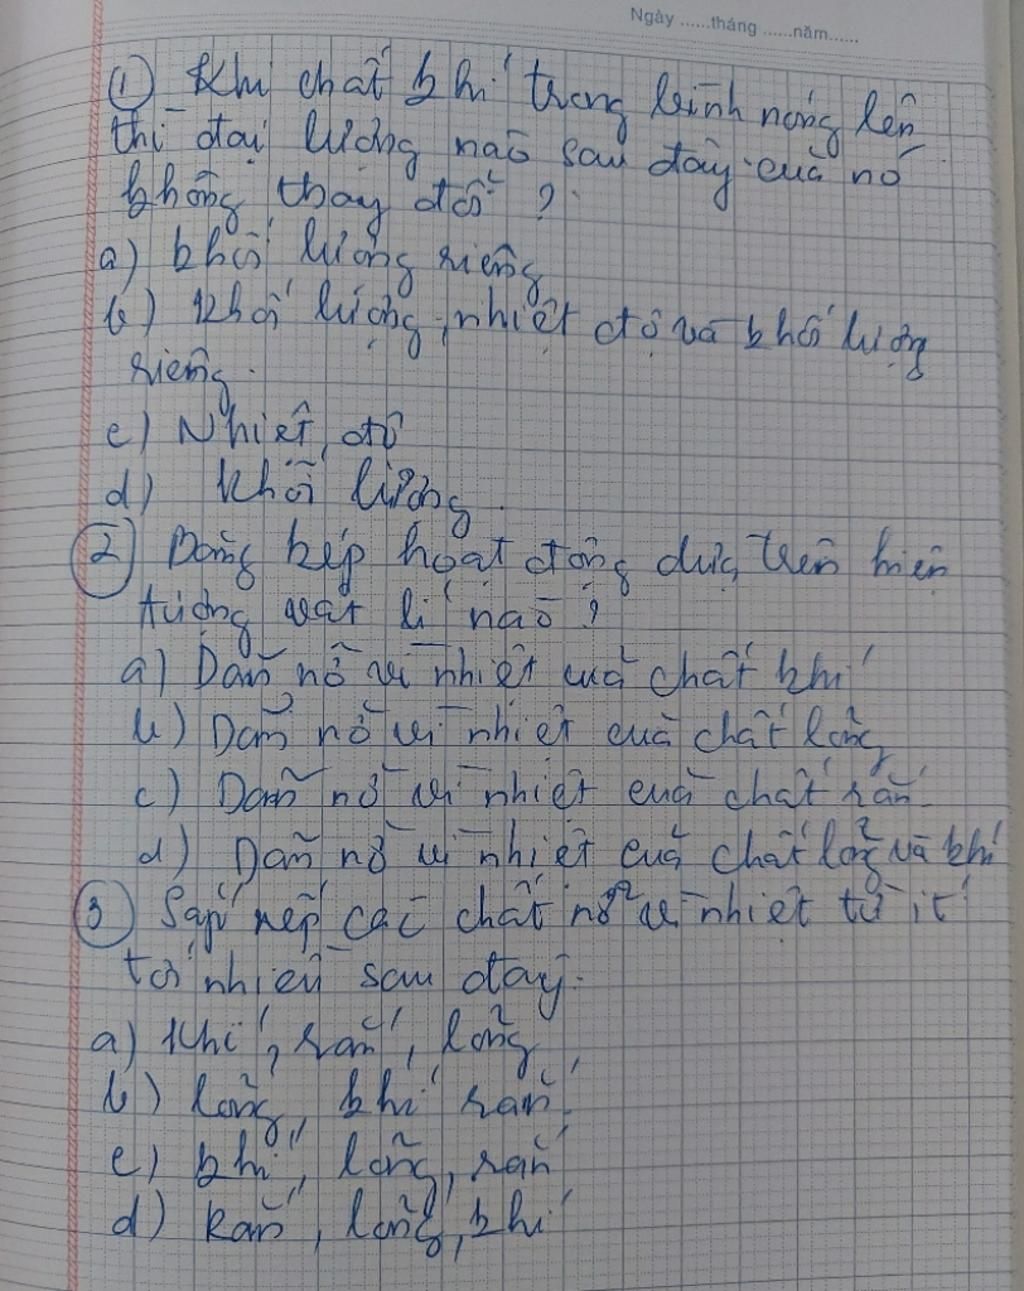 Ngày ......tháng ......năm......
① Khi chất khí trong bình nóng lên
thì đại lượng nào sau đây của nó
không thay đổi ?
a) khối lượng riêng
b) Khối lượng, nhiệt độ và khối lượng
riêng.
c) Nhiệt độ
d) Khối lượng.
② Băng kép hoạt động dựa trên hiện
tượng vật lí nào ?
a) Dãn nở vì nhiệt của chất khí
b) Dãn nở vì nhiệt của chất lỏng
c) Dãn nở vì nhiệt của chất rắn
d) Dãn nở vì nhiệt của chất lỏng và khí
③ Sắp xếp các chất nở vì nhiệt từ ít
tới nhiều sau đây.
a) Khí, rắn, lỏng
b) lỏng, khí rắn.
c) khí, lỏng, rắn
d) Rắn, lỏng, khí